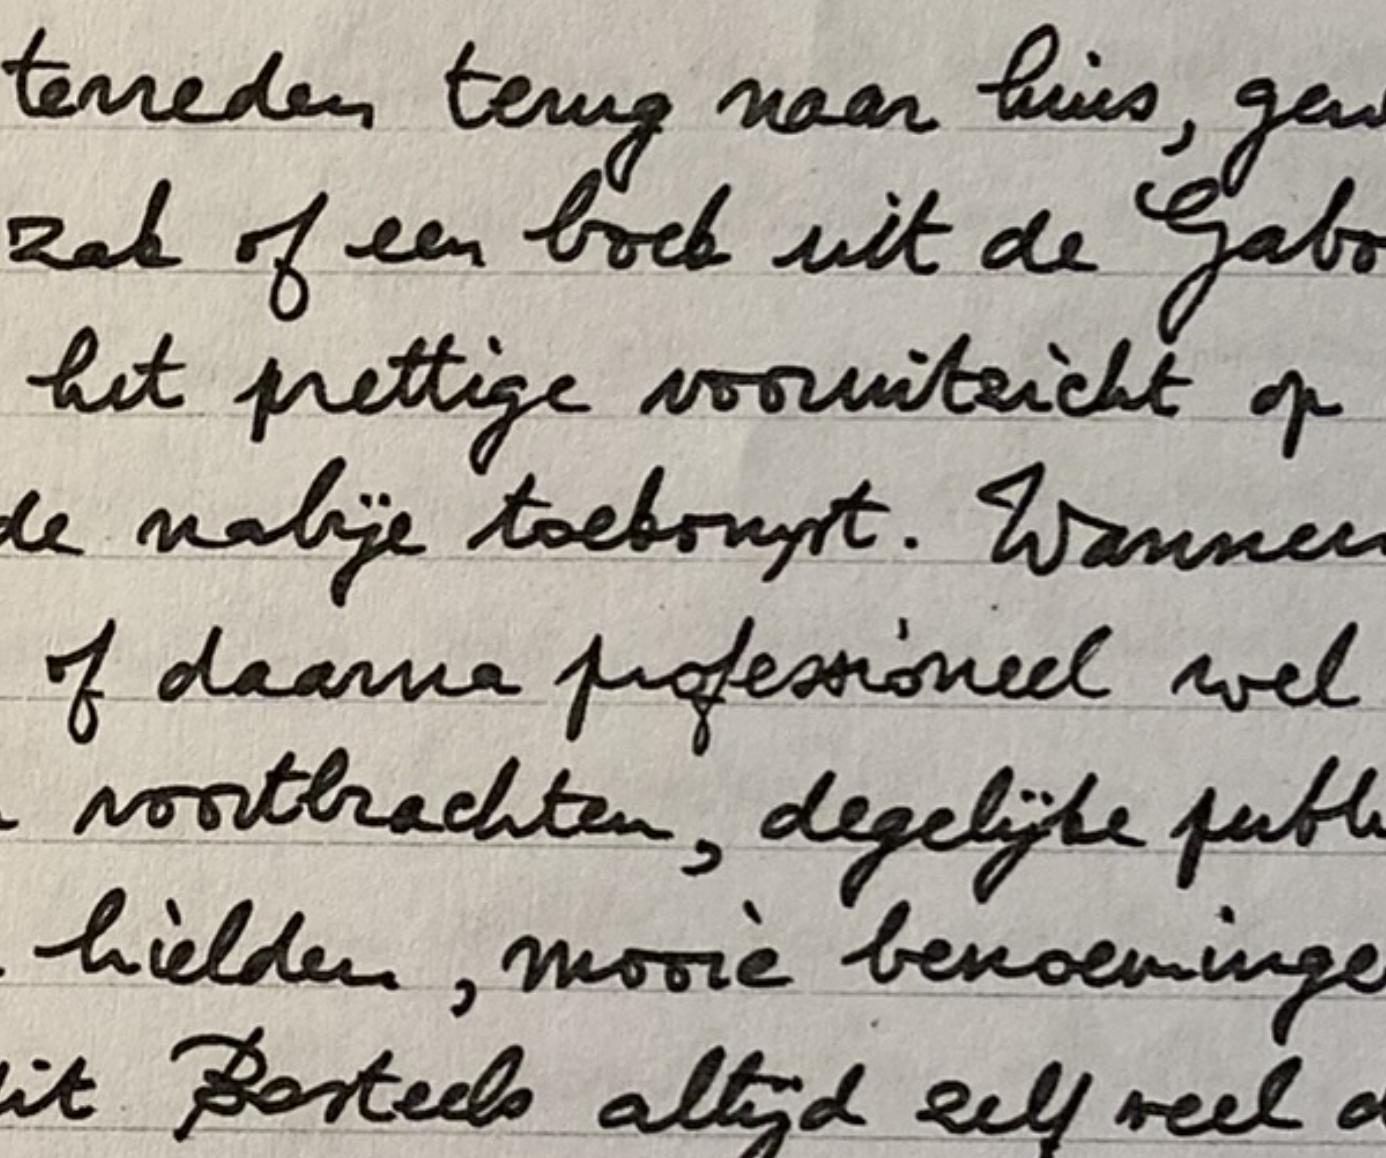 tevreden terug naar huis, gew
zak of een boek uit de Gabo
het prettige vooruitzicht op
de nabije toekomst. Wanneer
of daarna professioneel wel
voortbrachten, degelijke publi
hielden, mooie benoeminge
dit Bosteels altijd zelf veel d